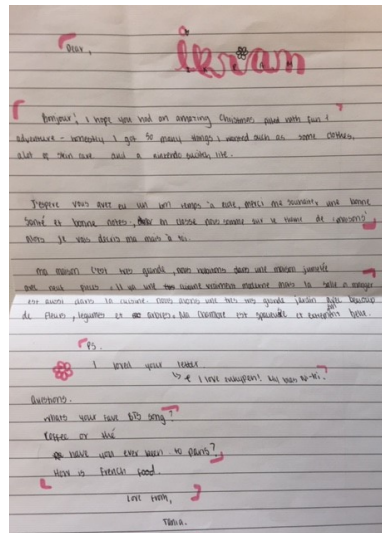 Dear,
ikram
Bonjour! I hope you had an amazing Christmas with fun &
adventure - honestly I got so many things I wanted such as some clothes,
alot of skin care and a nintendo switch lite.
J'espère vous avez eu un bon temps à noël, merci me une bonne
santé et bonne notes, en classe nous sur le thème de 'maisons'
Alors je vous décris ma mais à toi.
ma maison c'est très grande, nous habitons dans une maison jumelée
avec huit pièces. Il ya une cuisine moderne mais la salle a manger
est aussi dans la cuisine. nous avons une très grande jardin avec beaucoup
de fleurs, légumes et arbres. Ma chambre est et bleu.
PS.
I loved your letter.
I love enhypen! My bias Ni-Ki.
Questions.
Whats your fave BTS song?
Coffee or thé
have you ever been to paris?
How is French food.
love from,